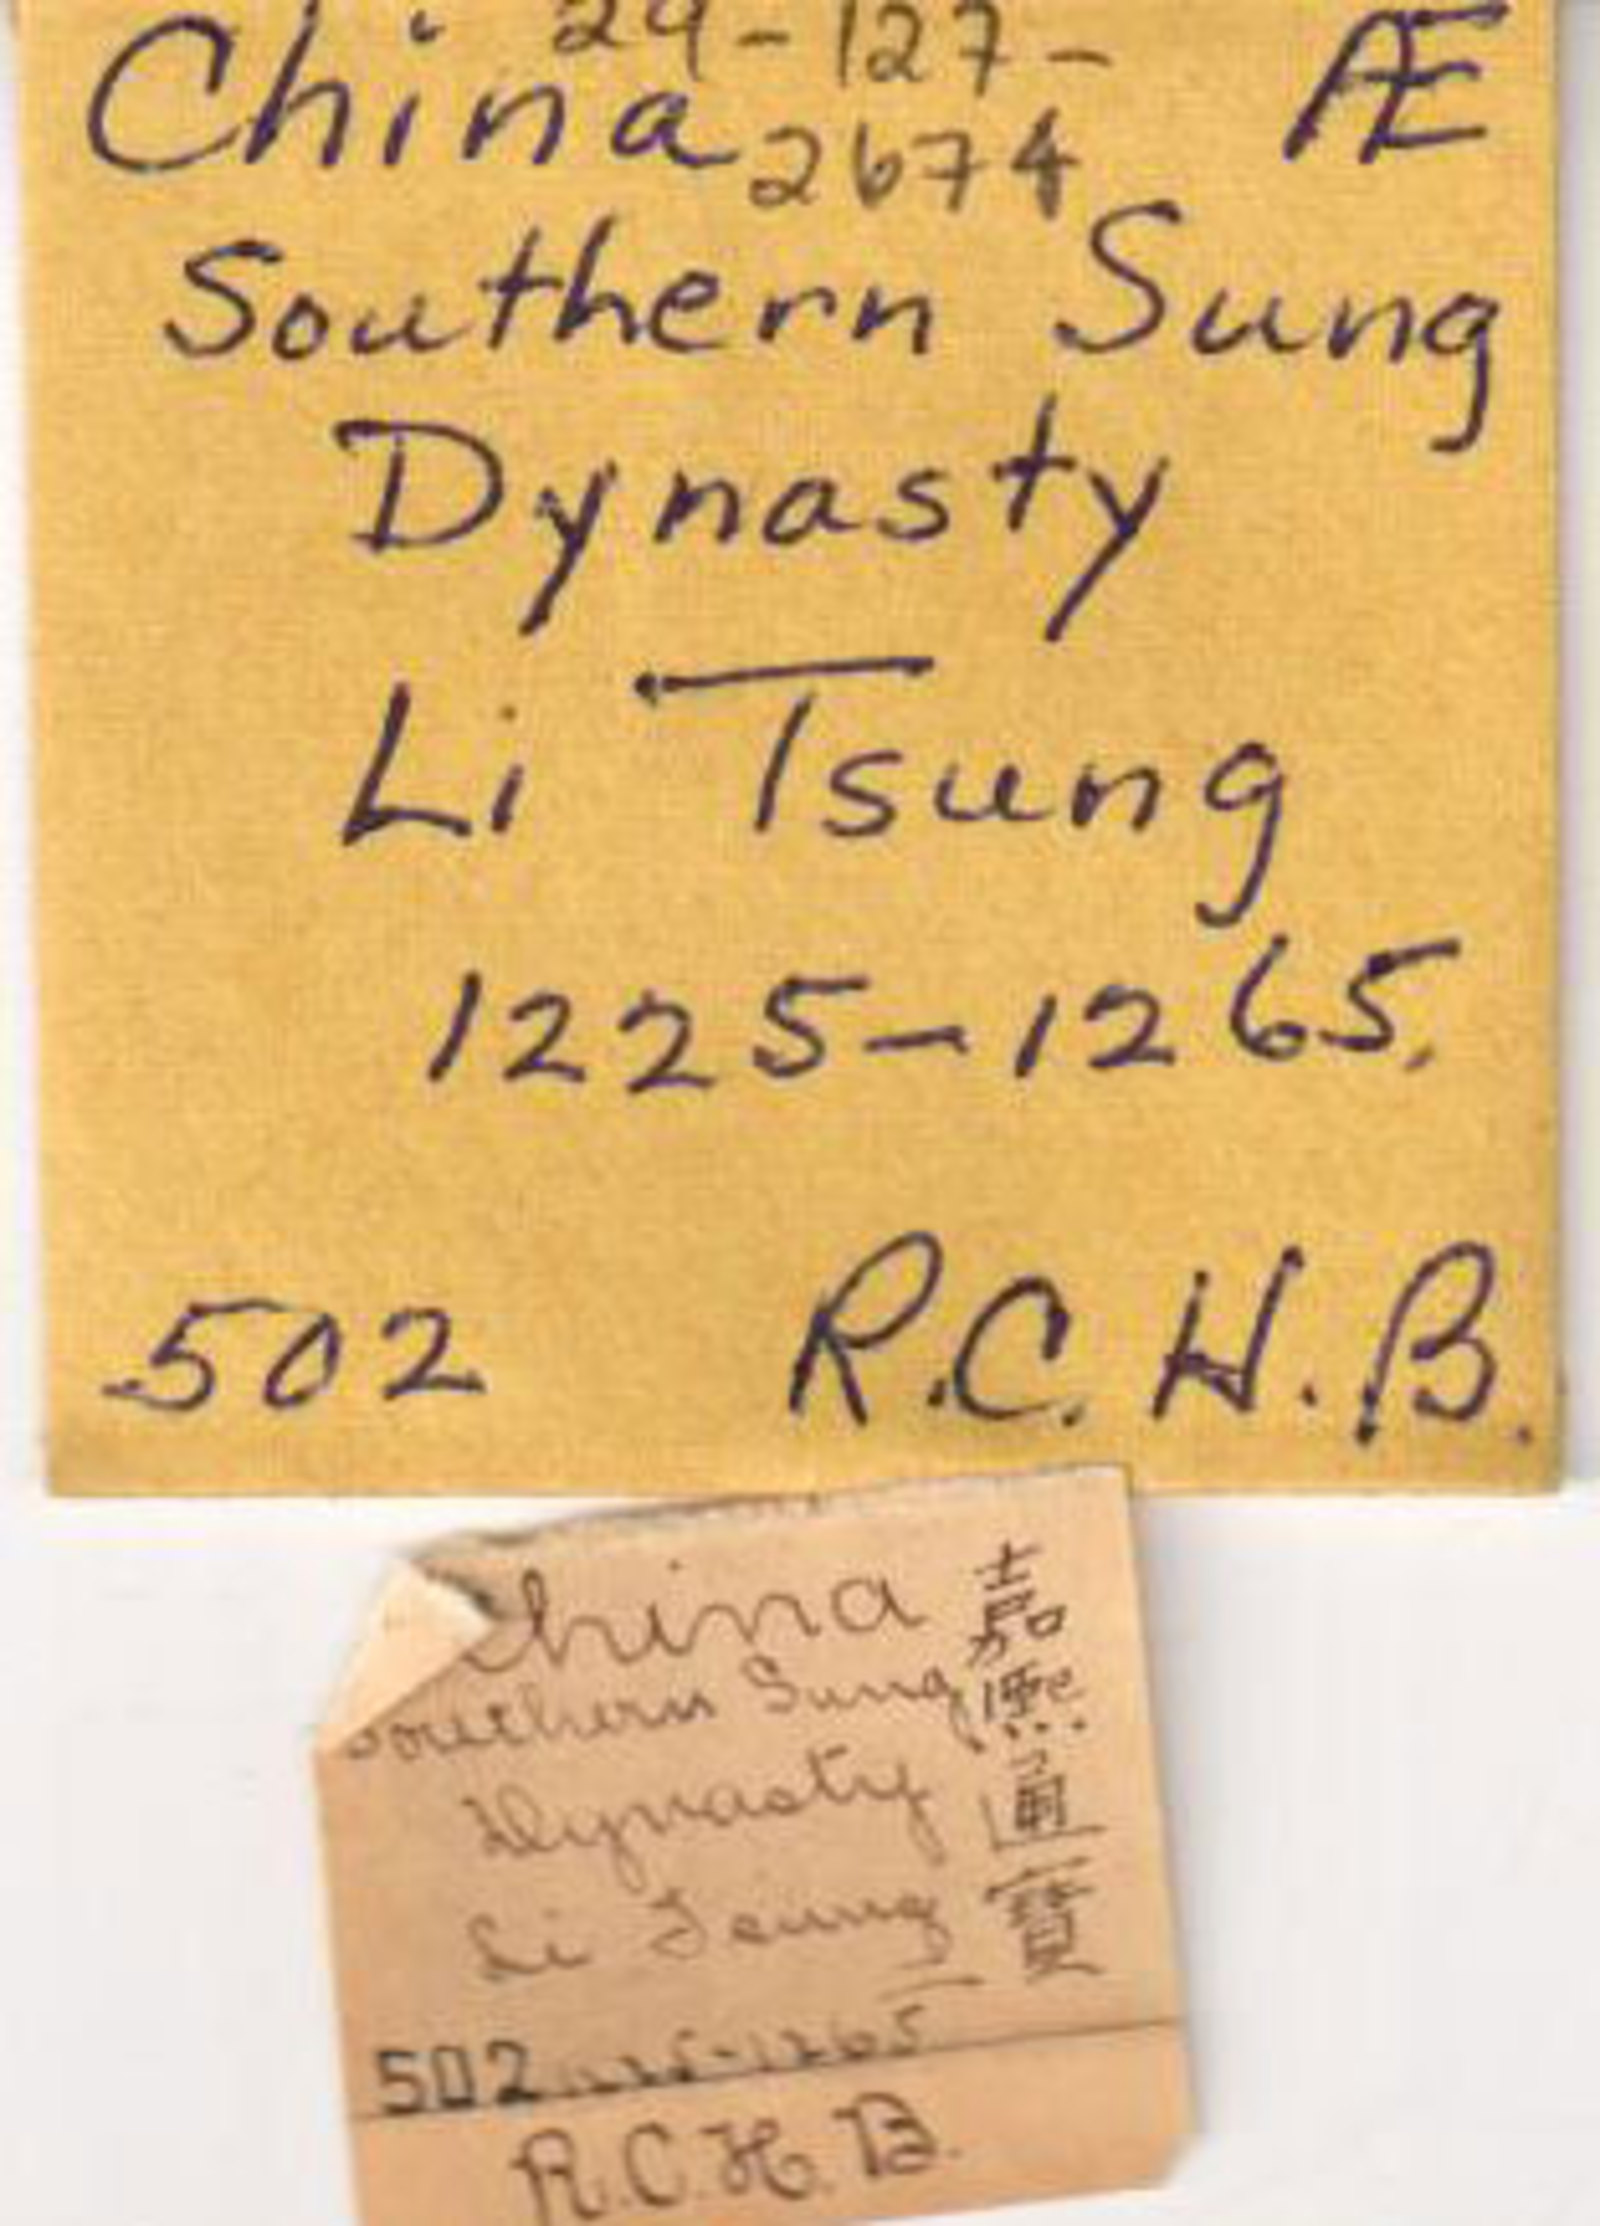 29-127-
China Æ
2674
Southern Sung
Dynasty
Li Tsung
1225-1265.
502 R.C.H.B.
China
Southern Sung
Dynasty
Li Tsung
嘉熙通寶
502 1225-1265
R.C.H.B.